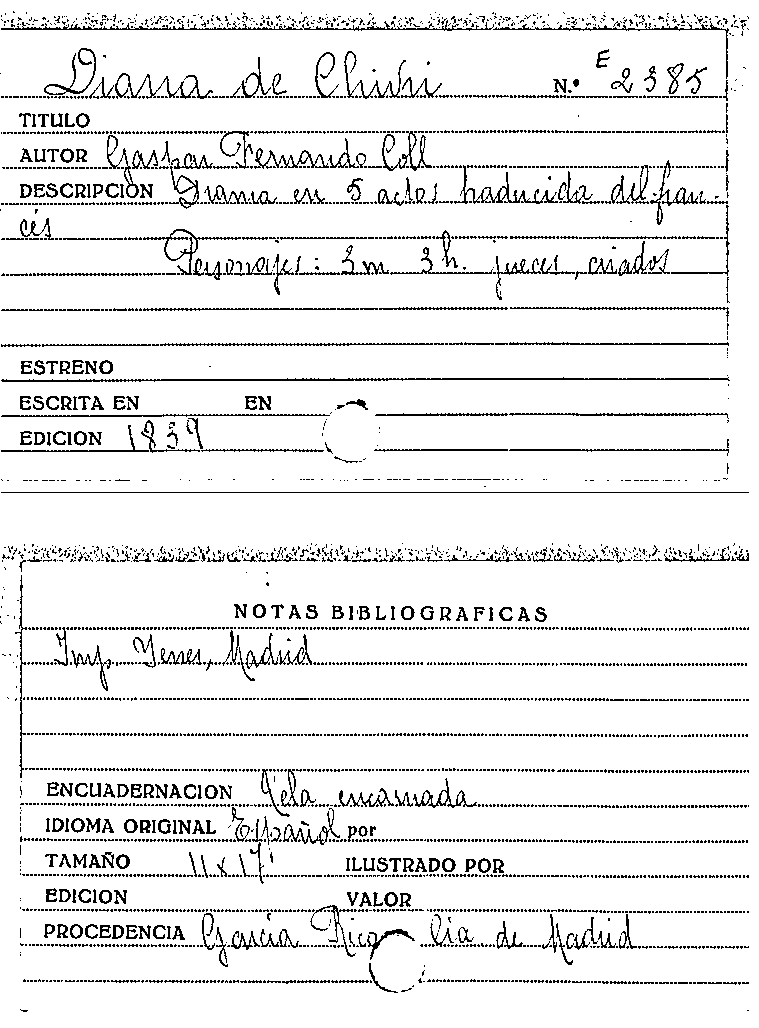 Diana de Chivri N.º E 2385
TITULO
AUTOR Gaspar Fernando Coll
DESCRIPCIÓN Drama en 5 actos traducida del fran-
cés
Personajes: 3 m 3 h. jueces, criados
ESTRENO
ESCRITA EN EN
EDICION 1839
NOTAS BIBLIOGRAFICAS
Imp. Yenes, Madrid
ENCUADERNACION Tela encarnada
IDIOMA ORIGINAL Español por
TAMAÑO 11 x 17 ILUSTRADO POR
EDICION VALOR
PROCEDENCIA García Rico de Madrid